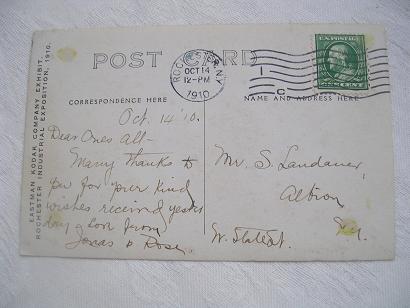 POST CARD
EASTMAN KODAK COMPANY EXHIBIT,
ROCHESTER INDUSTRIAL EXPOSITION, 1910.
ROCHESTER, N.Y.
OCT 14
12-PM
1910
1
C
U.S. POSTAGE
ONE CENT
CORRESPONDENCE HERE
NAME AND ADDRESS HERE
Oct. 14 '10.
Dear Ones all—
Many thanks to
you for your kind
wishes received yester
day & Love from
Jonas & Rose.
Mr. S. Landauer,
Albion
W. State St.
N.Y.